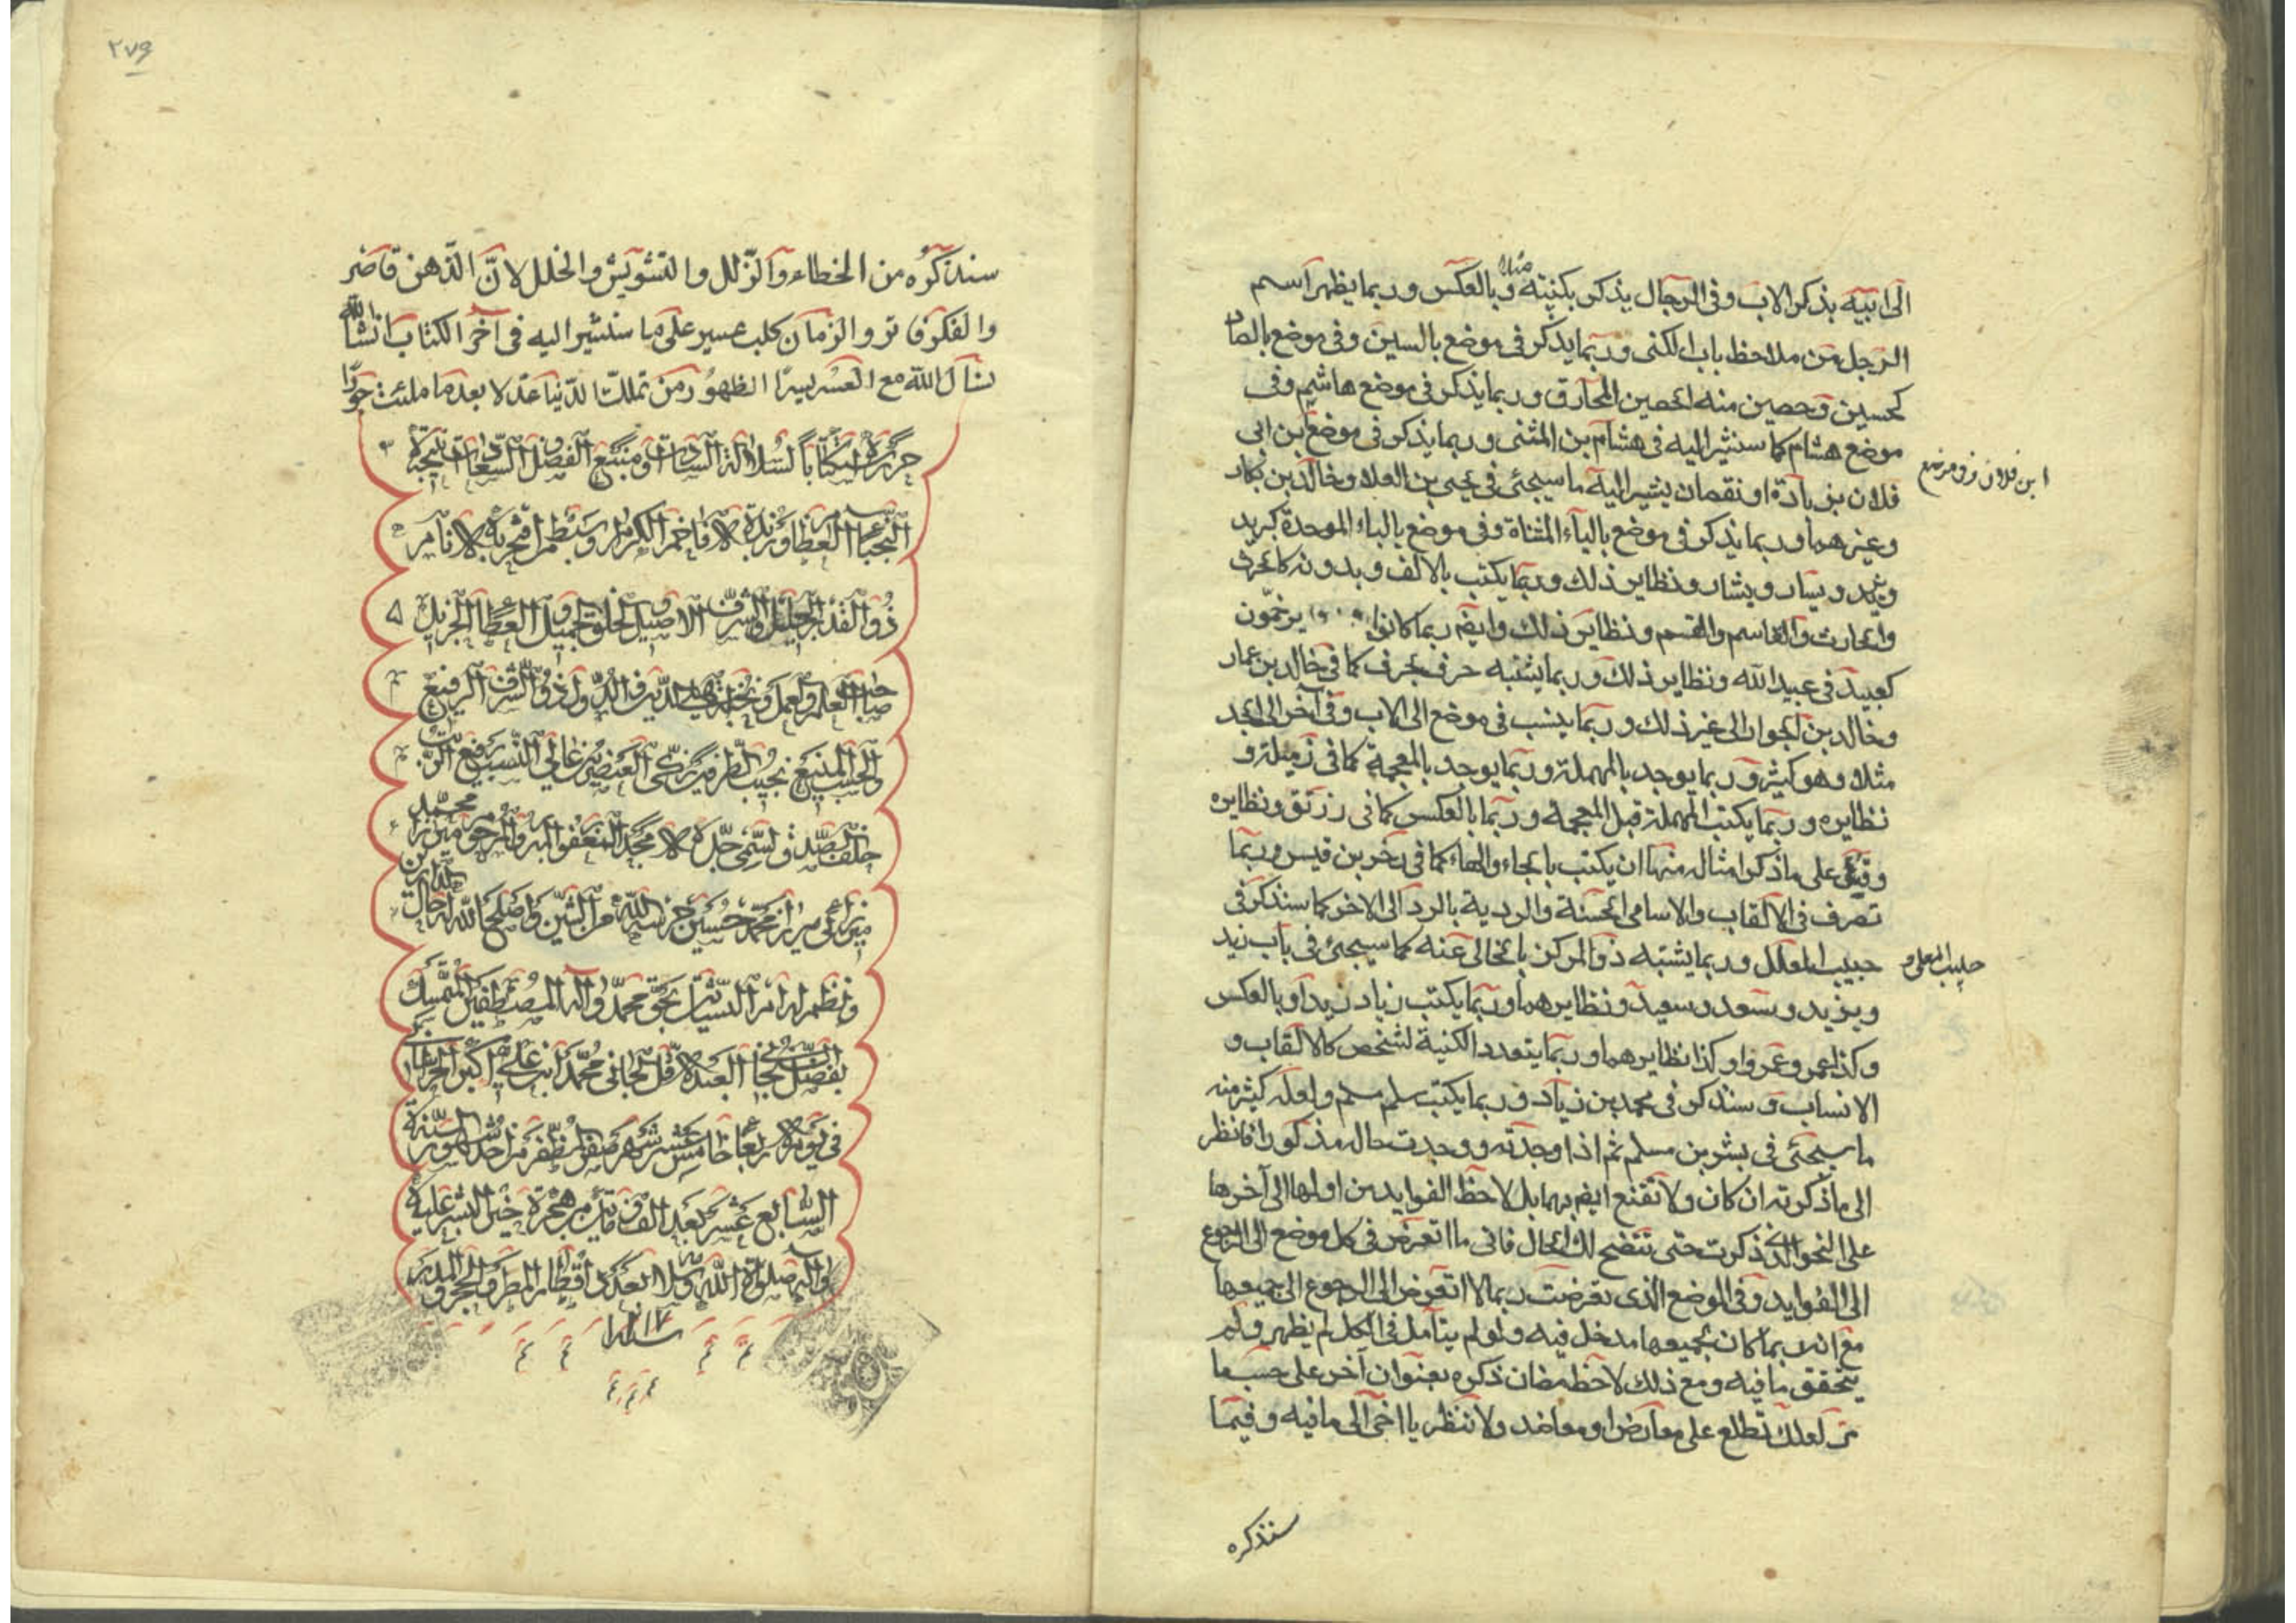 الى ابيه بذكر الاب وفى الرجال يذكر بكنيته مثلا وبالعكس وربما يظهر اسم
الرجل من ملاحظ باب الكنى وربما يذكر فى موضع بالسين وفى موضع بالصاد
كحسين وحصين منه الحصين المخارق وربما يذكر فى موضع هاشم وفى
موضع هشام كما سنشير اليه فى هشام بن المثنى وربما يذكر فى موضع ابن ابى
ابن فلان وفى موضع
فلان بزيادة او نقصان يشير اليه ما سيجئ فى يحيى بن العلاء وخالد بن بكار
وغيرهما وربما يذكر فى موضع بالياء المثناة وفى موضع بالباء الموحدة كبريد
ويزيد ويسار وبشار ونظاير ذلك وربما يكتب بالالف وبدونه كالحرث
والحارث والقاسم والقسم ونظاير ذلك وايضم ربما كانوا يرخمون
كعبيد فى عبيدالله ونظاير ذلك وربما يشتبه حرف بحرف كما فى خالد بن عمار
وخالد بن الجوار الى غير ذلك وربما ينسب فى موضع الى الاب وفى آخر الى الجد
مثلا وهو كثير وربما يوجد بالمهملة وربما يوجد بالمعجمة كما فى زميلة و
نظايره وربما يكتب المهملة قبل المعجمة وربما بالعكس كما فى رزيق ونظايره
وقس على ما ذكر امثاله منها ان يكتب بالحاء والهاء كما فى زحر بن قيس وربما
تصرف فى الالقاب والاسامى الحسنة والردية بالرد الى الاخر كما سنذكر فى
حبيب المعلل وربما يشتبه ذو المركز بالخالى عنه كما سيجئ فى باب زيد
حبيب المعلى و
ويزيد وسعد وسعيد ونظايرهما وربما يكتب زياد زيدا وبالعكس
وكذا عمر وعمرو او كذا نظايرهما وربما يتعدد الكنية لشخص كالالقاب و
الانساب وسنذكر فى محمد بن زياد وربما يكتب سلم مسلم ولعله كثير منه
ما سيجئ فى بشر بن مسلم ثم اذا وجدته ووجدت حاله مذكورا فانظر
الى ما ذكرته ان كان ولا تقنع ايضم بهما بل لاحظ الفوايد من اولها الى آخرها
على النحو الذى ذكرت حتى يتضح لك الحال فانى ما اتعرض فى كل موضع الى الرجوع
الى الفوايد وفى الموضع الذى تعرضت ربما لا اتعرض الى الرجوع الى جميعها
مع انه ربما كان بجميعها مدخل فيه ولو لم يتامل فى الكل لم يظهر ولم
يتحقق ما فيه ومع ذلك لاحظ مضان ذكره بعنوان آخر على حسب ما
مر لعلك تطلع على معارض او معاضد ولا تنظر يا اخى الى ما فيه وفيما
سنذكره
٢٧۶
سنذكره من الخطاء والزلل والتشويش والخلل لان الذهن قاصر
والفكر فاتر والزمان كلب عسير على ما سنشير اليه فى آخر الكتاب انشاء الله
نسأل الله مع العسر يسرا الظهور من تملك الدنيا عدلا بعد ما ملئت جورا
حررت كتابا لسلالة السادات ومنبع الفضل والسعادات نتيجة
النجباء العظام وزبدة الافاخم الكرام ونظم افتخر به الانام
ذو القدر الجليل والشرف الاصيل والخلق الجميل والعطاء الجزيل
صاحب العلم والعمل ونخبة الدين والدول ذو الشرف الرفيع
والحسب المنيع نجيب الطرفين زكى العنصرين عالى النسب رفيع الرتب
خلف الصدق وسمى جده الامجد المغفور المبرور المرحوم ميرزا محمد
ميرزا محمد حسين حرسه الله من الشين واصلح الله له حال الدارين
ونظم له امر النشأتين بحق محمد وآله المصطفين المتمسك
بفضل العبد الاقل الجانى محمد ابن على اكبر
فى يوم الاربعا خامس عشر شهر صفر المظفر من احد شهور السنة
السابع عشر بعد الف ومأتين من هجرة خير البشر عليه
وآله صلوات الله وسلامه بعدد اقطار المطر والحجر والمدر
سنه ١٢١٧